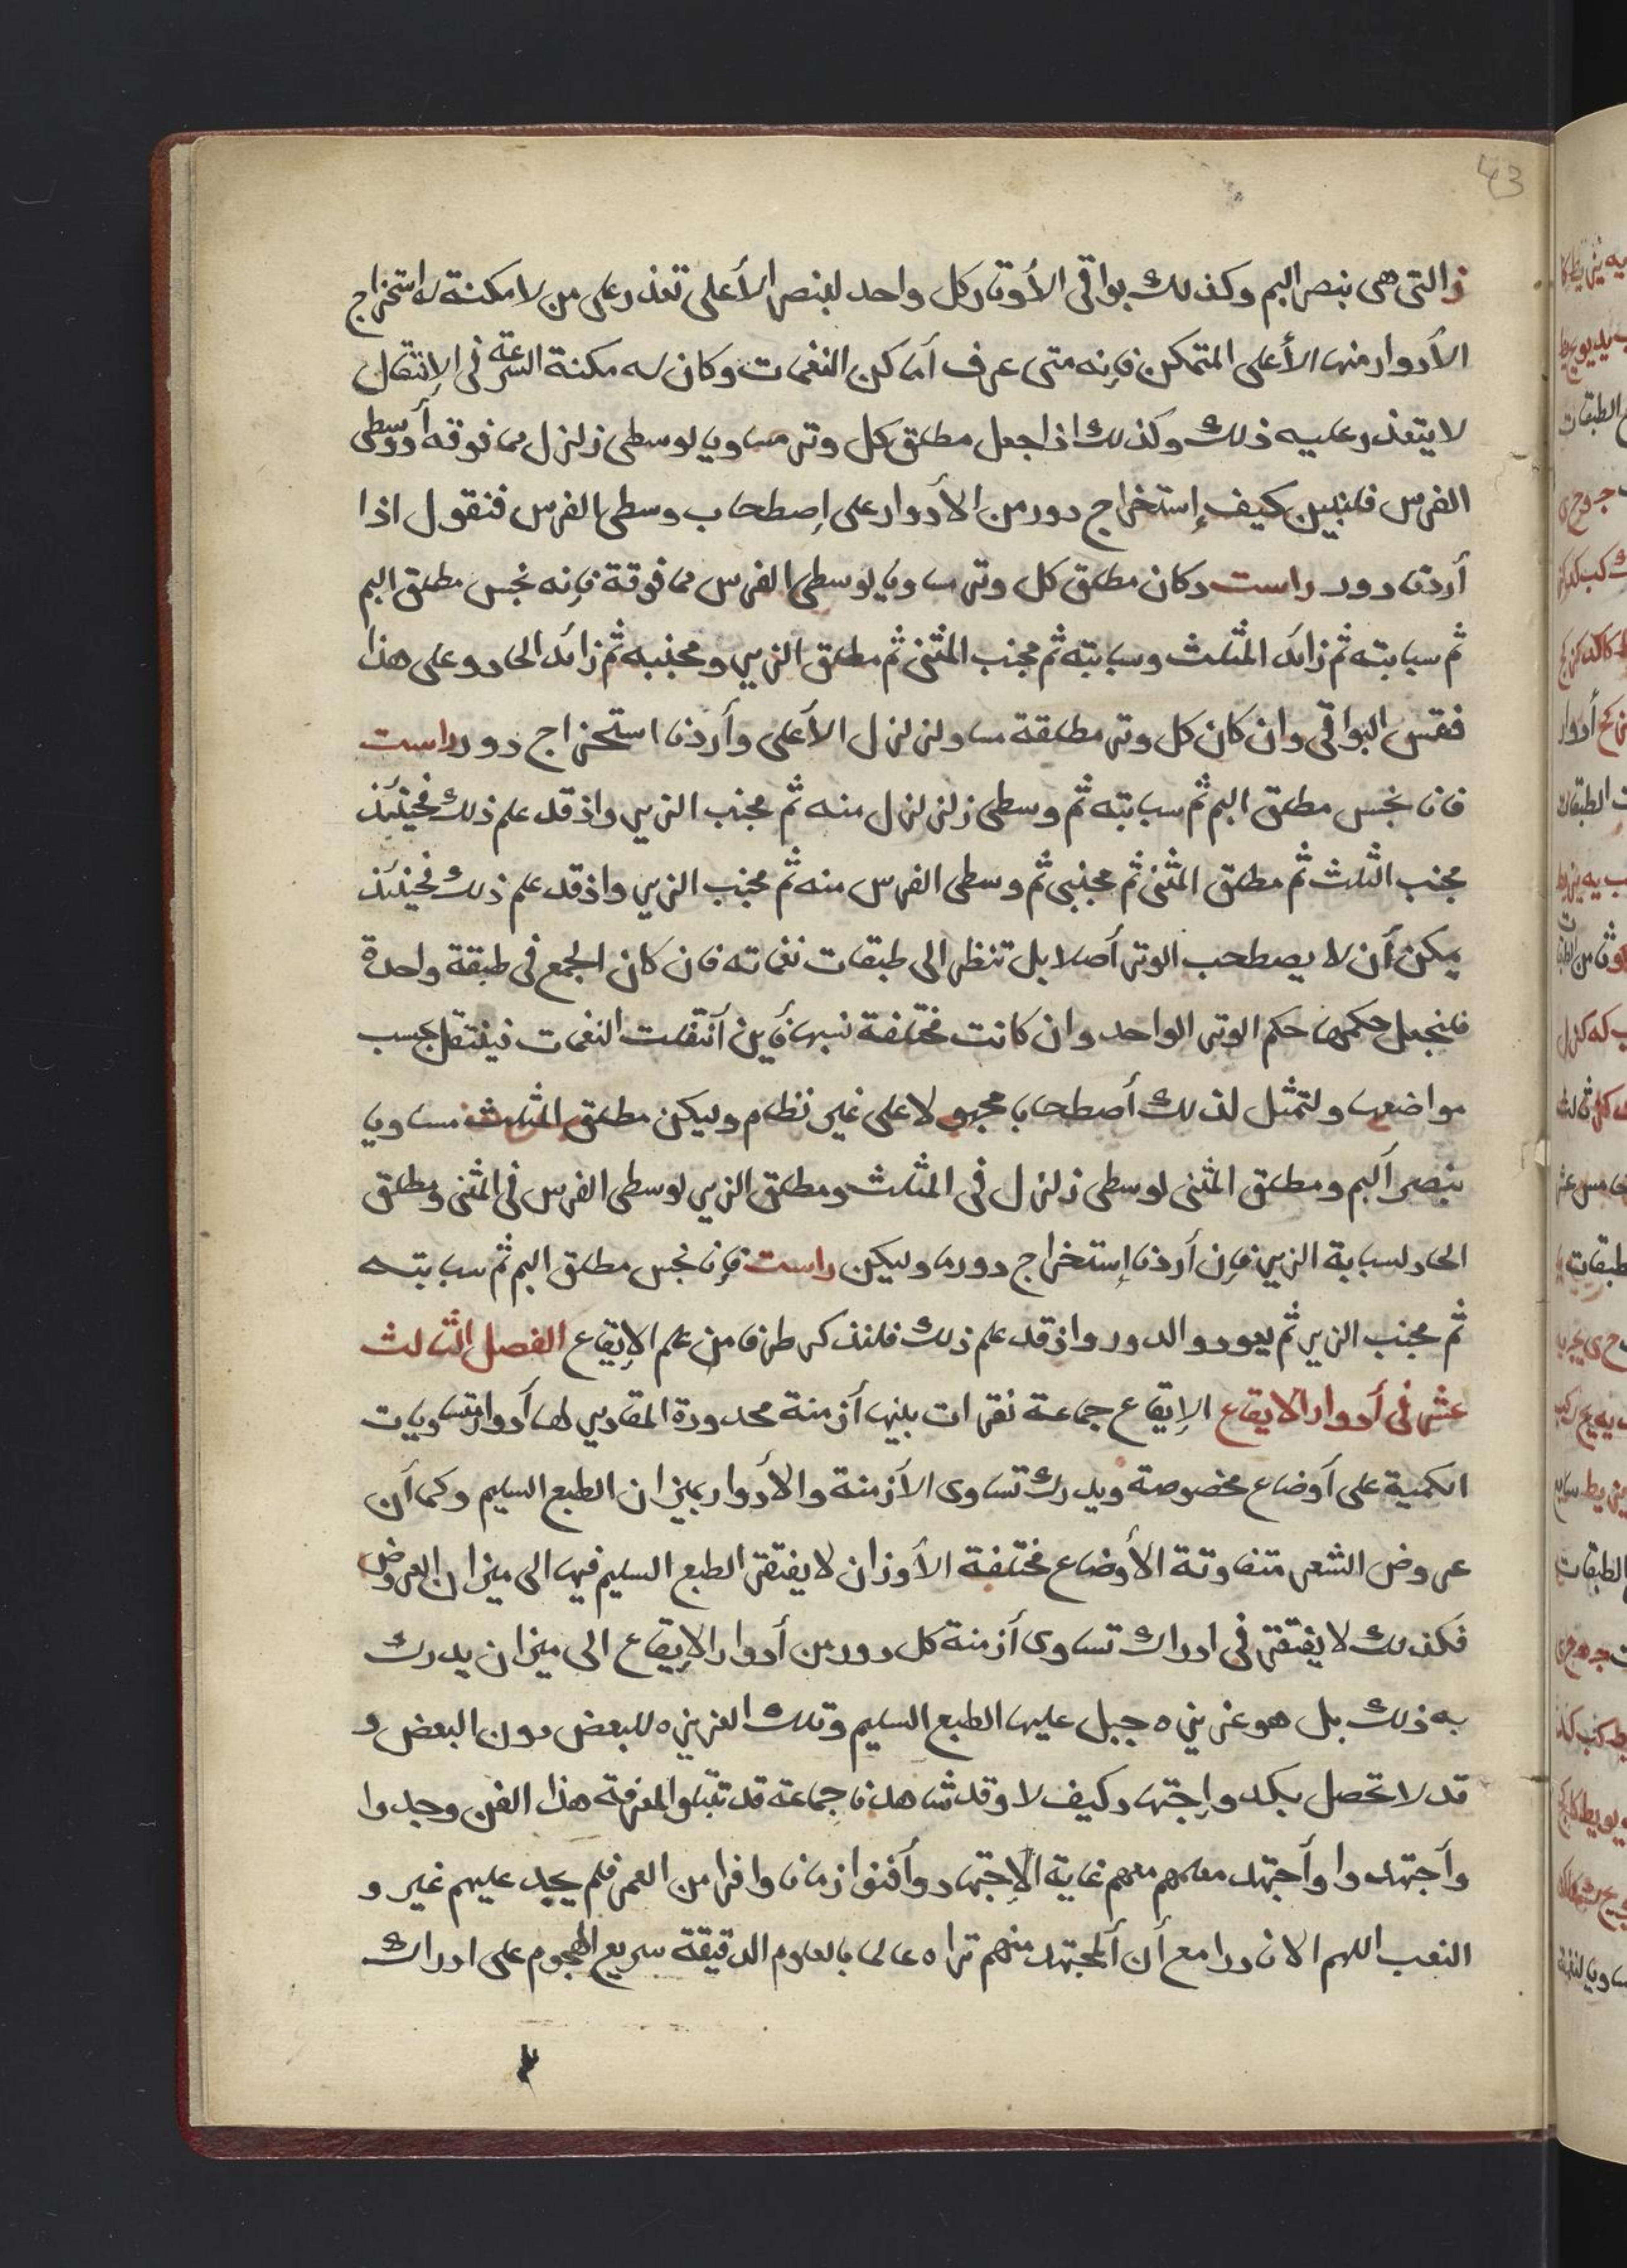 43
ز التى هى بنصر البم وكذلك بواقى الأوتار كل واحد لبنصر الأعلى تعذر على من لا مكنة له استخراج
الأدوار منها الأعلى المتمكن فإنه متى عرف أماكن النغمات وكان له مكنة السرعة فى الإنتقال
لا يتعذر عليه ذلك وكذلك اذا جعل مطلق كل وتر مساويا لوسطى زلزل مما فوقه أو وسطى
الفرس فلنبين كيف إستخراج دور من الأدوار على إصطحاب وسطى الفرس فنقول اذا
أردنا دور راست وكان مطلق كل وتر مساويا لوسطى الفرس مما فوقة فإنه نجس مطلق البم
ثم سبابته ثم زائد المثلث وسبابته ثم مجنب المثنى ثم مطلق الزير ومجنبه ثم زائد الحاد وعلى هذا
فقس البواقى وان كان كل وتر مطلقة مساو لزلزل الأعلى وأردنا استخراج دور راست
فانا نجس مطلق البم ثم سبابته ثم وسطى زلزلزل منه ثم مجنب الزير واذ قد علم ذلك فحينئذ
مجنب الثلث ثم مطلق المثنى ثم مجنبى ثم وسطى الفرس منه ثم مجنب الزير واذ قد علم ذلك فحينئذ
يمكن أن لا يصطحب الوتر أصلا بل تنظر الى طبقات نغماته فان كان الجمع فى طبقة واحدة
فلنجعل حكمها حكم الوتر الواحد وان كانت مختلفة نسبها فأين أنتقلت النغمات فينتقل بحسب
مواضعها ولتمثل لذلك أصطحابا مجهولا على غير نظام وليكن مطلق المثلث مساويا
بنصر البم ومطلق المثنى لوسطى زلزل فى المثلث ومطلق الزير لوسطى الفرس فى المثنى ومطلق
الحاد لسبابة الزير فإن أردنا إستخراج دورما وليكن راست فإنا نجس مطلق البم ثم سبابته
ثم مجنب الزير ثم يعود والدور واذ قد علم ذلك فلنذكر طرفا من علم الإيقاع الفصل الثالث
عشر فى أدوار الايقاع الإيقاع جماعة نقرات بينها أزمنة محدودة المقادير لها أدوار متساويات
الكمية على أوضاع مخصوصة ويدرك تساوى الأزمنة والأدوار بميزان الطبع السليم وكما أن
عروض الشعر متفاوتة الأوضاع مختلفة الأوزان لا يفتقر الطبع السليم فيها الى ميزان العروض
فكذلك لا يفتقر فى ادراك تساوى أزمنة كل دور من أدوار الإيقاع الى ميزان يدرك
به ذلك بل هو غريزه جبل عليها الطبع السليم وتلك الغريزه للبعض دون البعض و
قد لا تحصل بكد وإجتهاد وكيف لا وقد شاهدنا جماعة قد تبتلوا لمعرفة هذا الفن وجدوا
وأجتهدوا وأجتهد معلمهم معهم غاية الإجتهاد وأفنوا زمانا وافرا من العمر فلم يجد عليهم غير و
التعب اللهم الا نادرا مع أن المجتهد منهم تراه عالما بالعلوم الدقيقة سريع الهجوم على ادراك